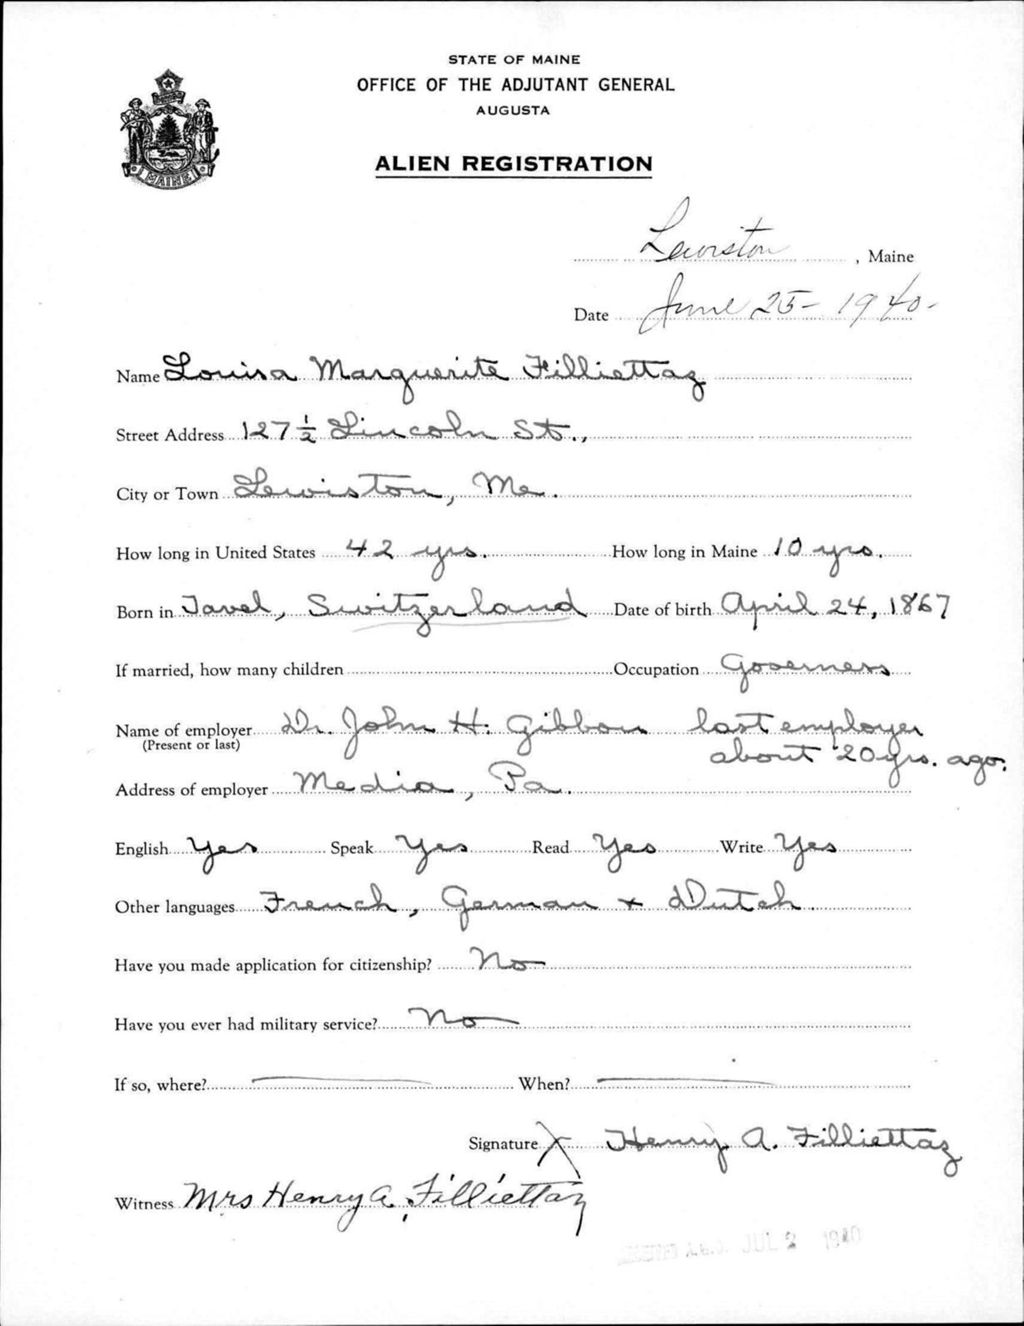 STATE OF MAINE
OFFICE OF THE ADJUTANT GENERAL
AUGUSTA
ALIEN REGISTRATION
MAINE
Lewiston, Maine
Date June 25 - 1940 -
Name Louisa Marguerite Filliettaz
Street Address 127 1/2 Lincoln St.,
City or Town Lewiston, Me.
How long in United States 42 yrs. How long in Maine 10 yrs.
Born in Tavel, Switzerland Date of birth April 24, 1867
If married, how many children Occupation Governess
Name of employer Dr. John H. Gibbon last employer
(Present or last) about 20 yrs. ago.
Address of employer Media, Pa.
English Yes Speak Yes Read Yes Write Yes
Other languages French, German + Dutch.
Have you made application for citizenship? No
Have you ever had military service? No
If so, where? — When? —
Signature X Henry A. Filliettaz
Witness Mrs Henry A. Filliettaz
A.G.O. JUL 2 1940